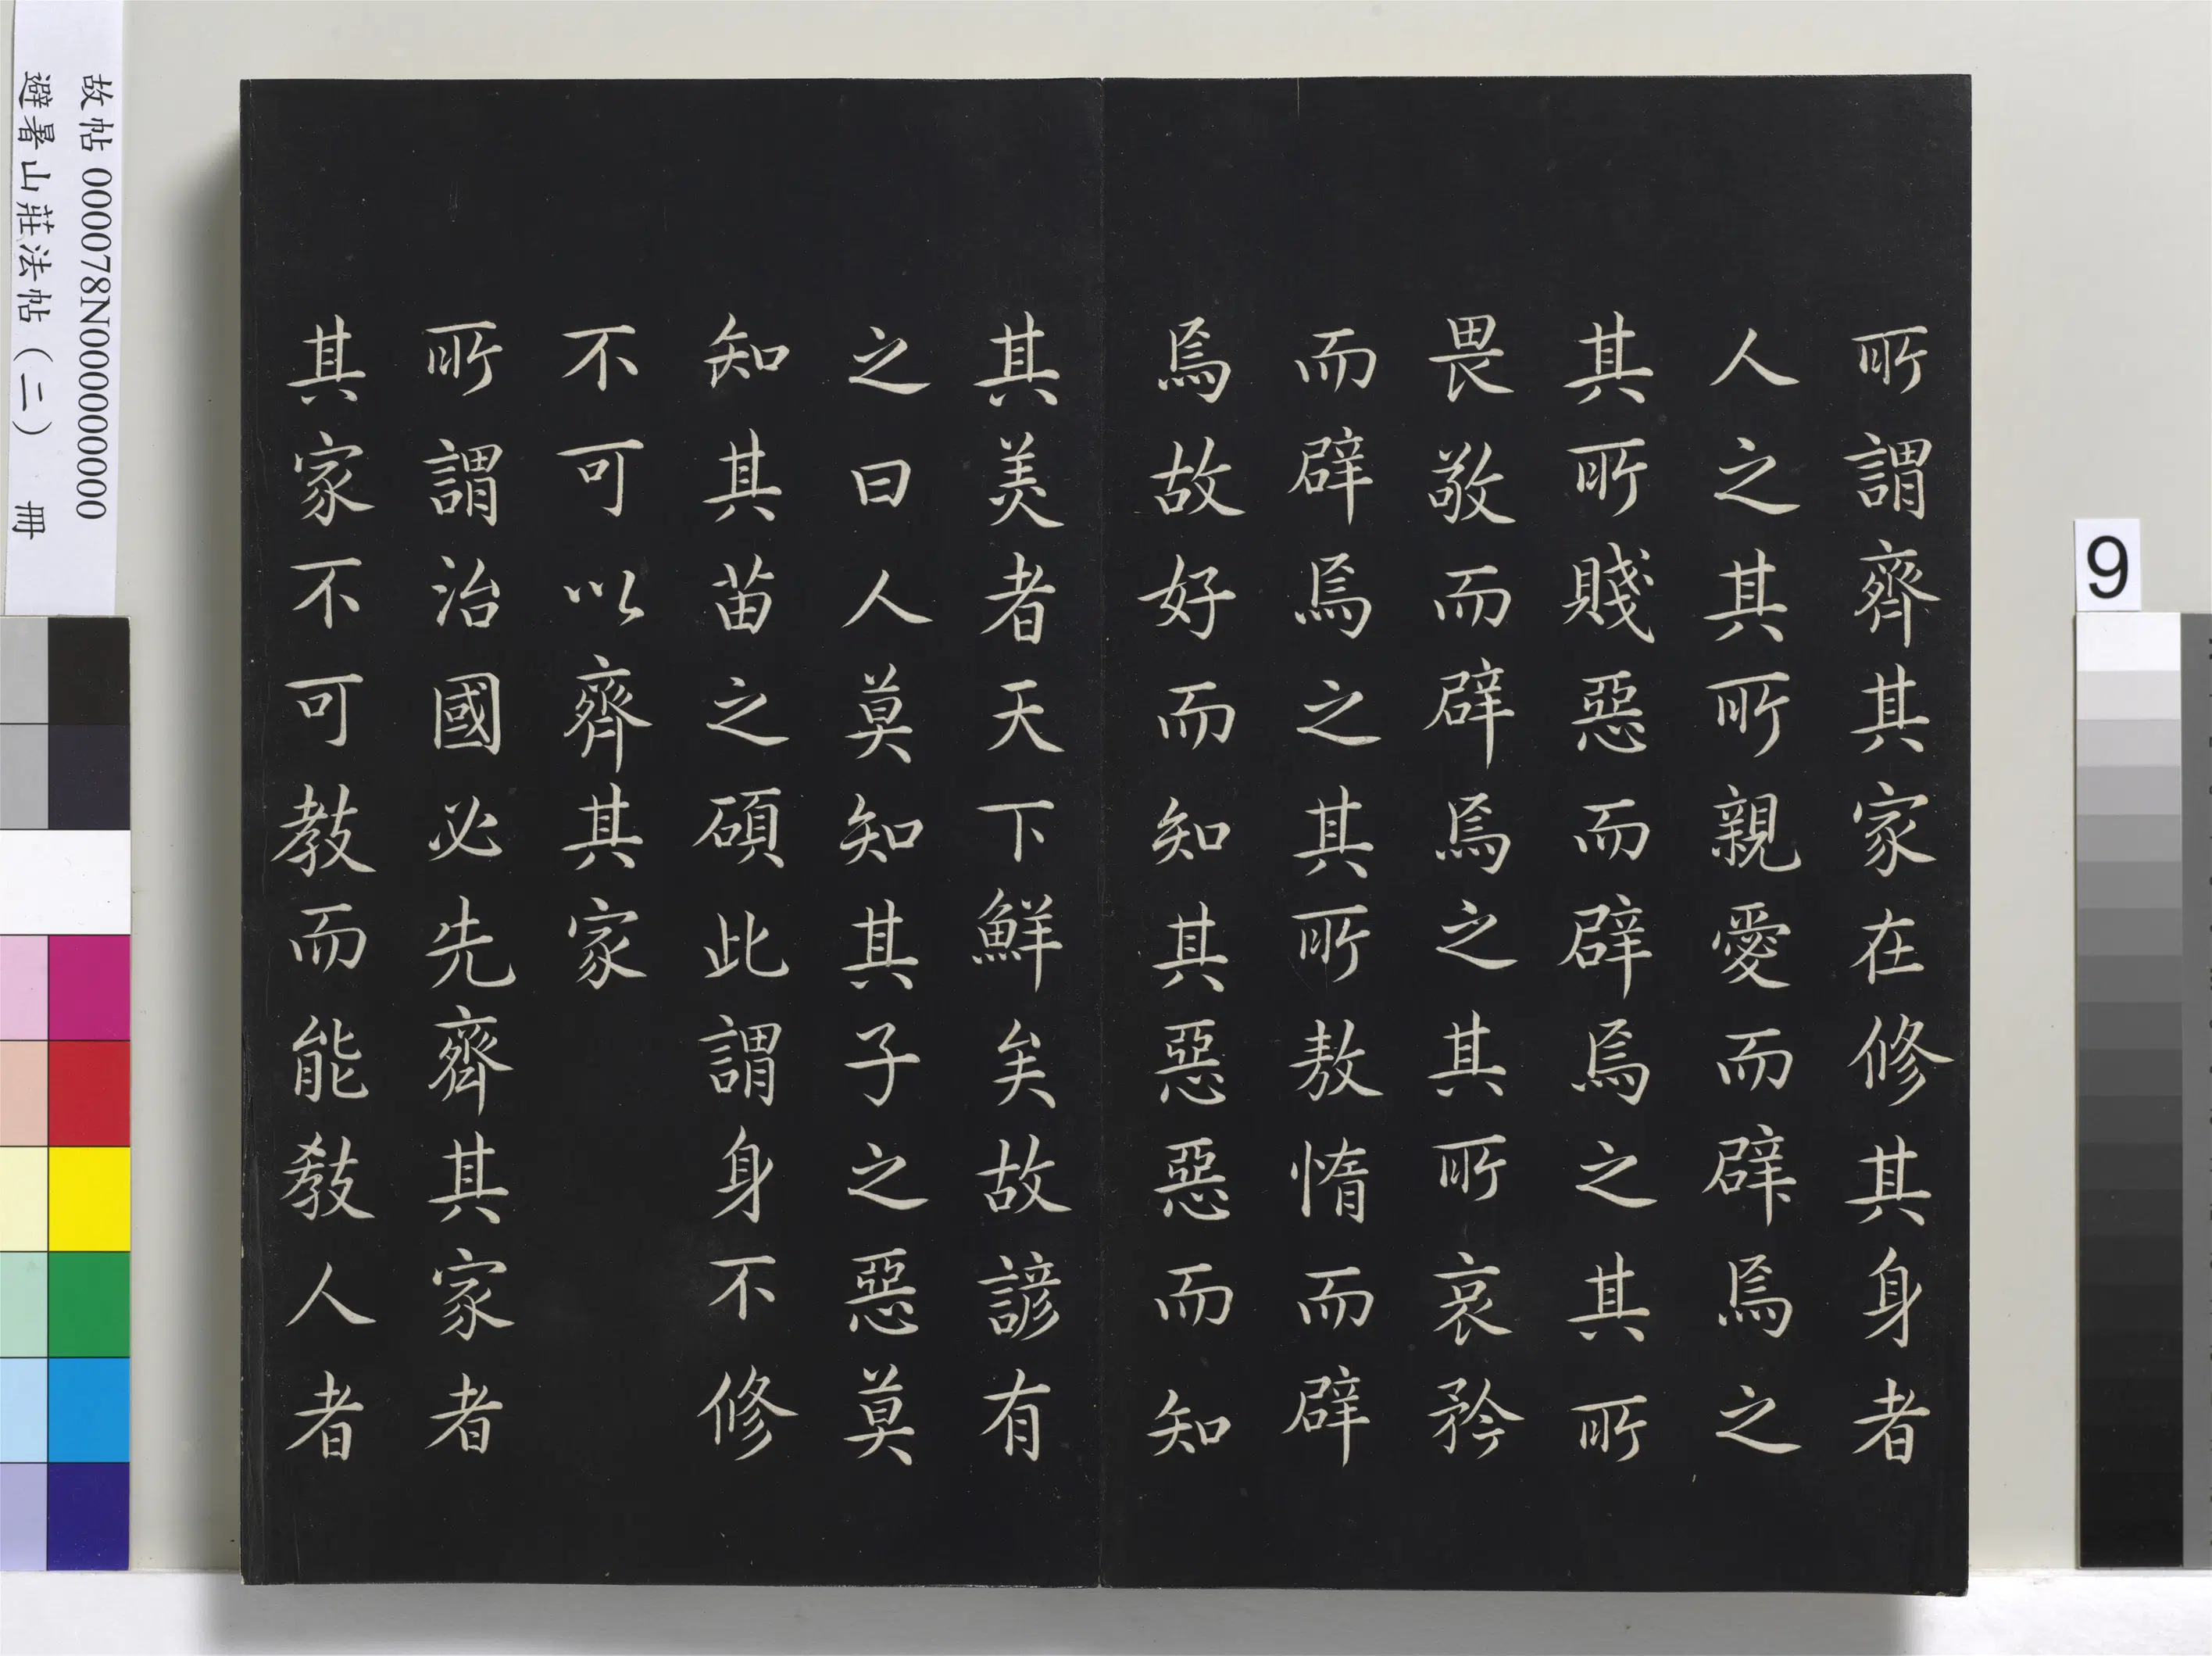 所謂齊其家在修其身者
人之其所親愛而辟焉之
其所賤惡而辟焉之其所
畏敬而辟焉之其所哀矜
而辟焉之其所敖惰而辟
焉故好而知其惡惡而知
其美者天下鮮矣故諺有
之曰人莫知其子之惡莫
知其苗之碩此謂身不修
不可以齊其家
所謂治國必先齊其家者
其家不可教而能教人者
故帖 000078N000000000
避暑山莊法帖（二） 冊
9